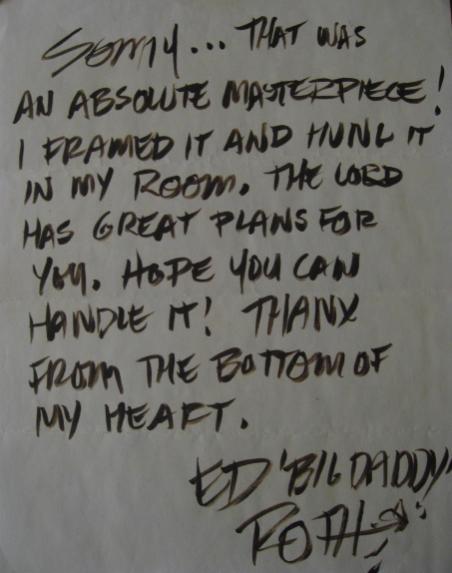 Sorry... THAT WAS
AN ABSOLUTE MASTERPIECE!
I FRAMED IT AND HUNG IT
IN MY ROOM. THE LORD
HAS GREAT PLANS FOR
YOU. HOPE YOU CAN
HANDLE IT! THANX
FROM THE BOTTOM OF
MY HEART.
ED 'BIG DADDY'
ROTH